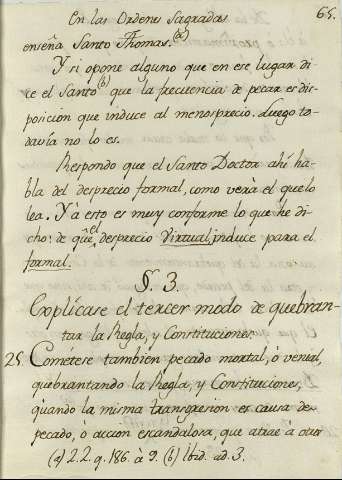 En las Ordenes Sagradas 65.
enseña Santo Thomas. (a)
Y si opone alguno que en ese lugar di
ce el Santo (b) que la frecuencia de pecar es dis-
posicion que induce al menosprecio. Luego to-
davía no lo es.
Respondo que el Santo Doctor ahí ha-
bla del desprecio formal, como verà el que lo
lea. Y à esto es muy conforme lo que he di-
cho: de q̃ue el desprecio Virtual, induce para el
formal.
§. 3.
Explícase el tercer modo de quebran-
tar la Regla, y Constituciones.
25. Cométese tambien pecado mortal, ò venial,
quebrantando la Regla, y Constituciones,
quando la misma transgresion es causa de
pecado, ò accion escandalosa, que atrae à otro
(a) 2.2. q. 186. à 9. (b) Ibid. ad. 3.